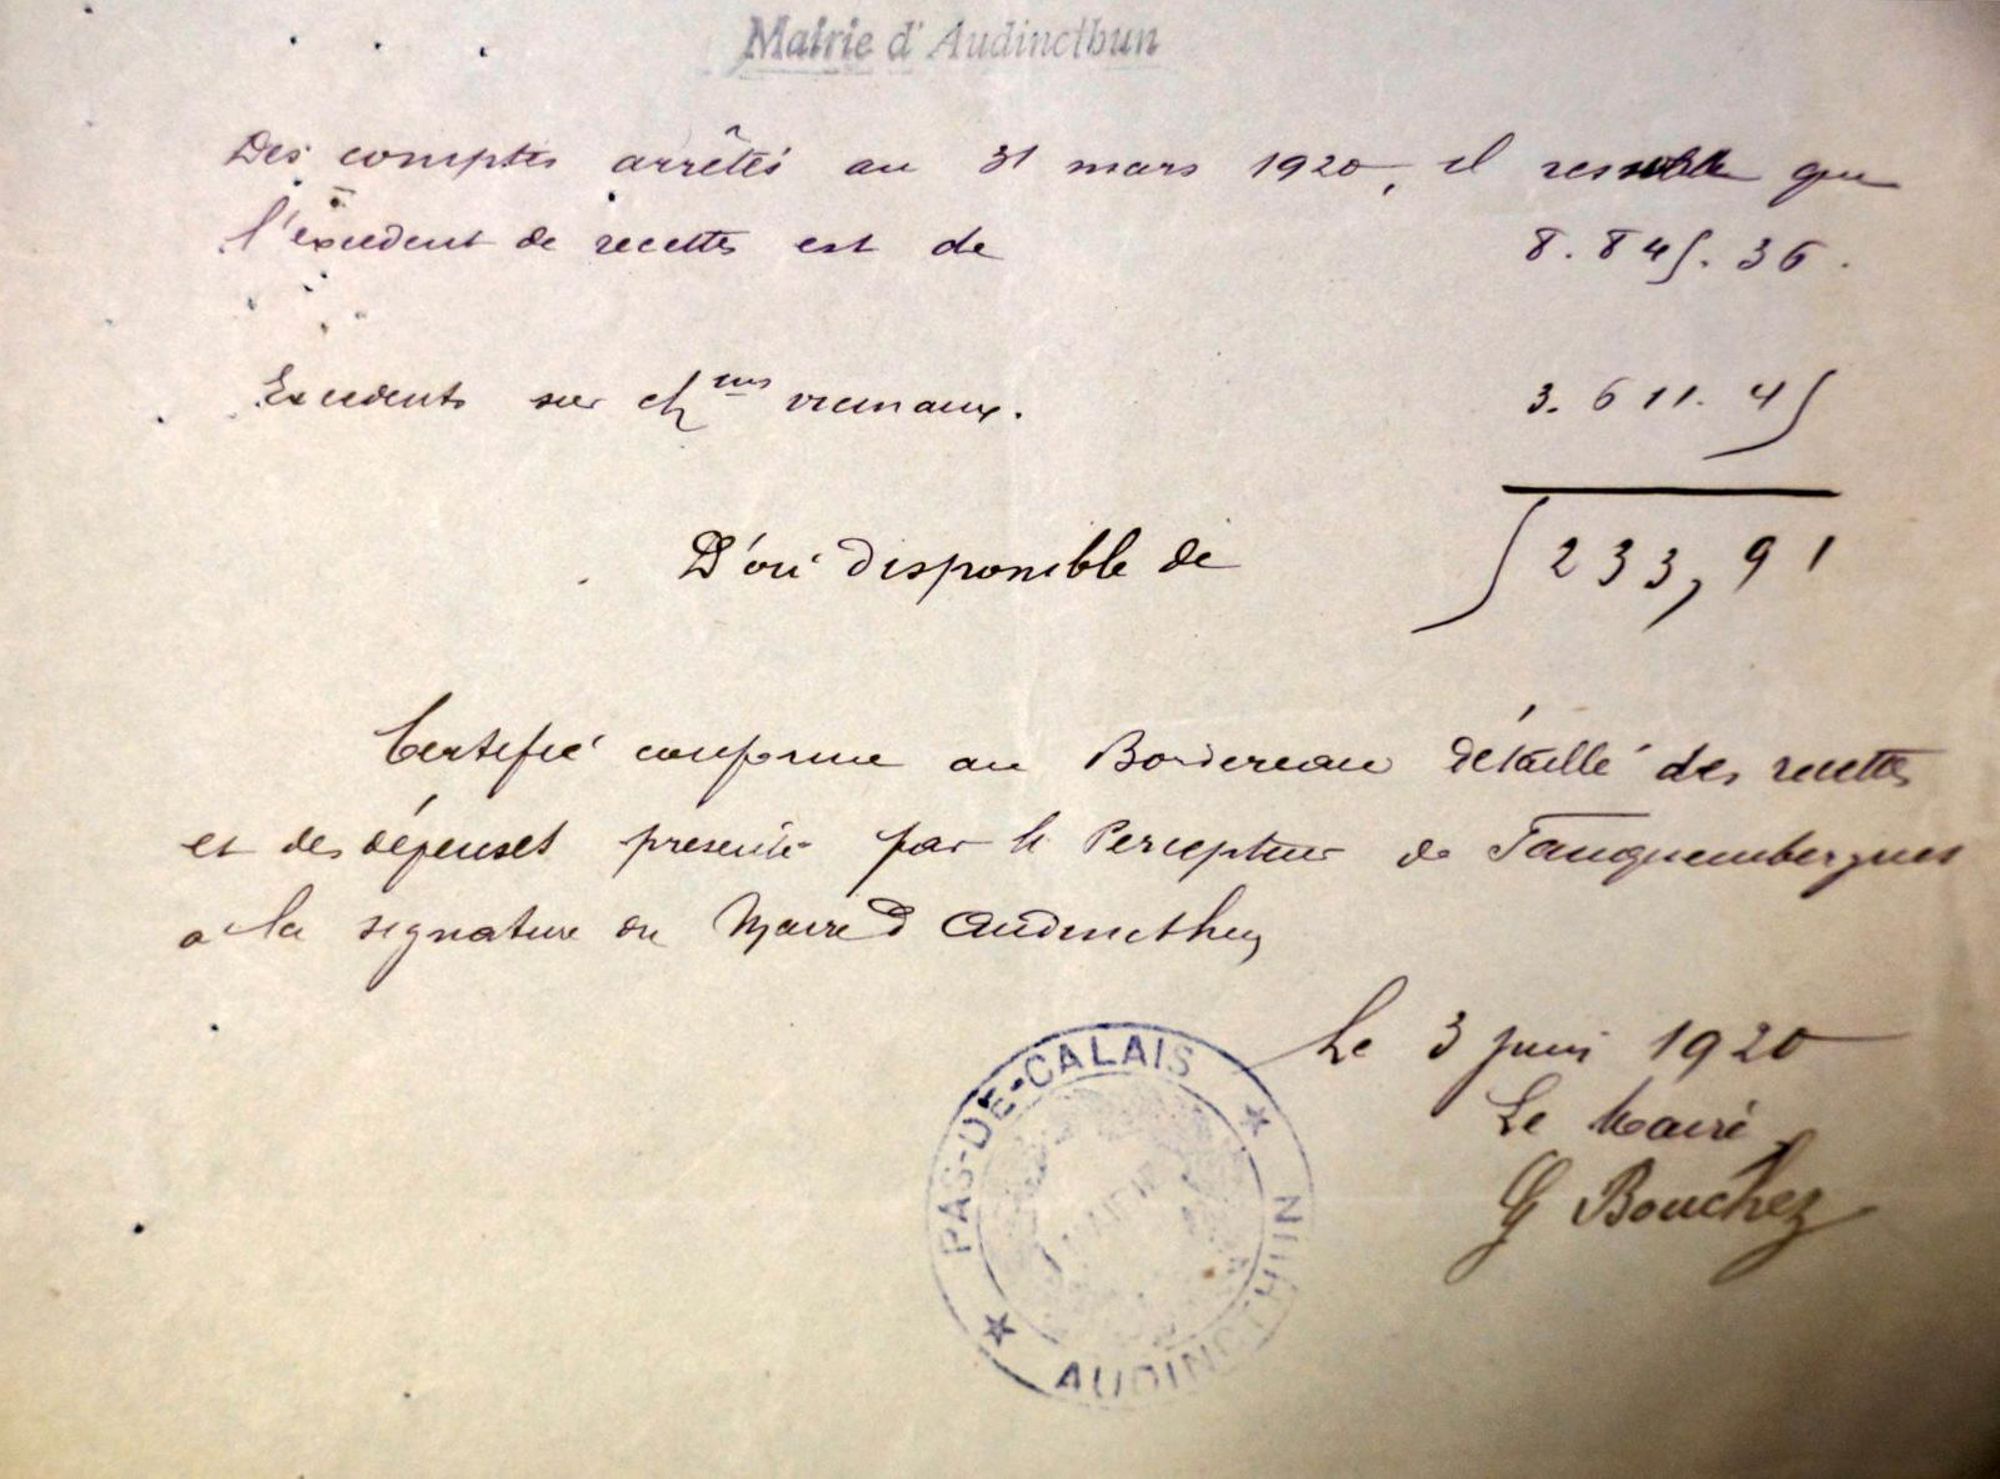 Mairie d'Audincthun
Des comptes arrêtés au 31 mars 1920, il résulte que
l'excédent de recettes est de 8.845.36.
Excédents sur chins vicinaux. 3.611.45
D'où disponible de 5233,91
Certifié conforme au Bordereau détaillé des recettes
et des dépenses présenté par le Percepteur de Fauquembergues
à la signature du Maire d'Audincthun
Le 3 juin 1920
Le Maire
G Bouchez
PAS-DE-CALAIS
MAIRIE
AUDINCTHUN